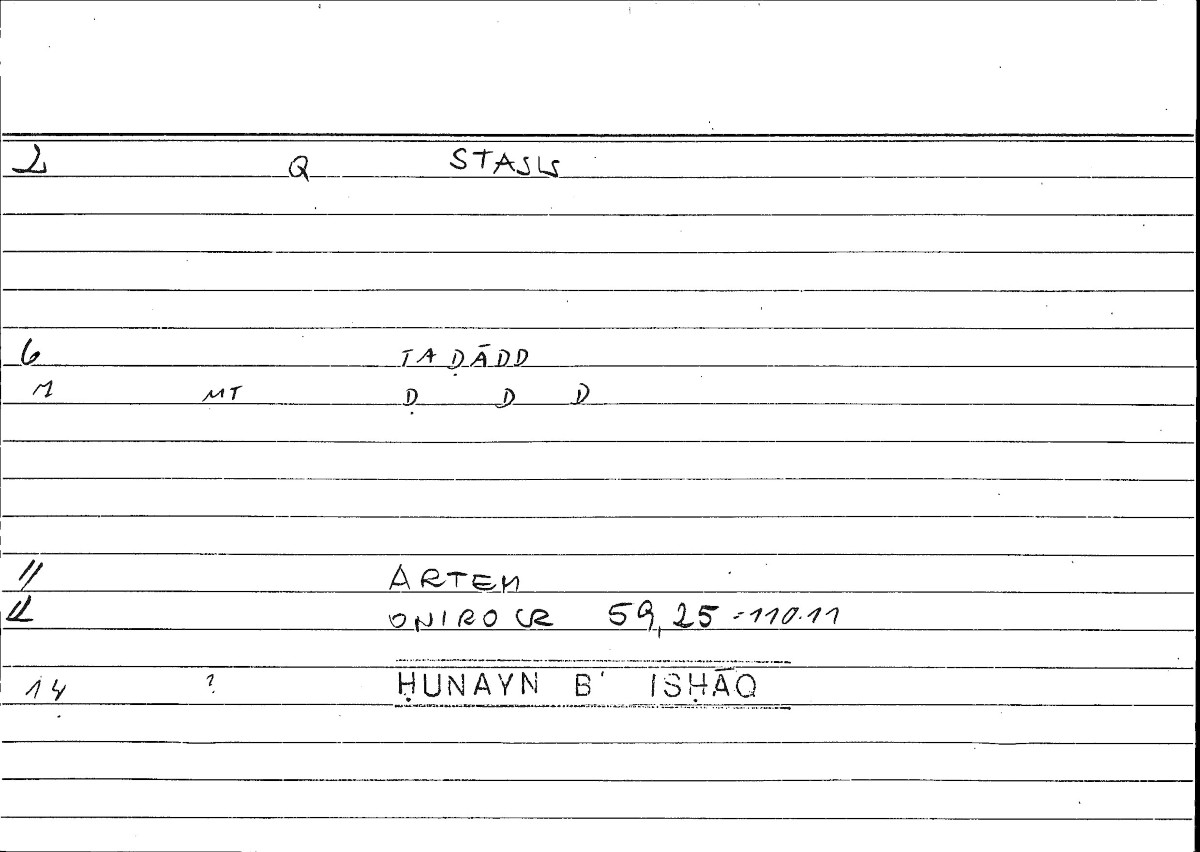 2 Q STASIS
6 TAḌĀDD
M MT Ḍ D D
11 ARTEM
12 ONIROCR 59,25 = 110.11
14 ? ḤUNAYN B' ISḤĀQ